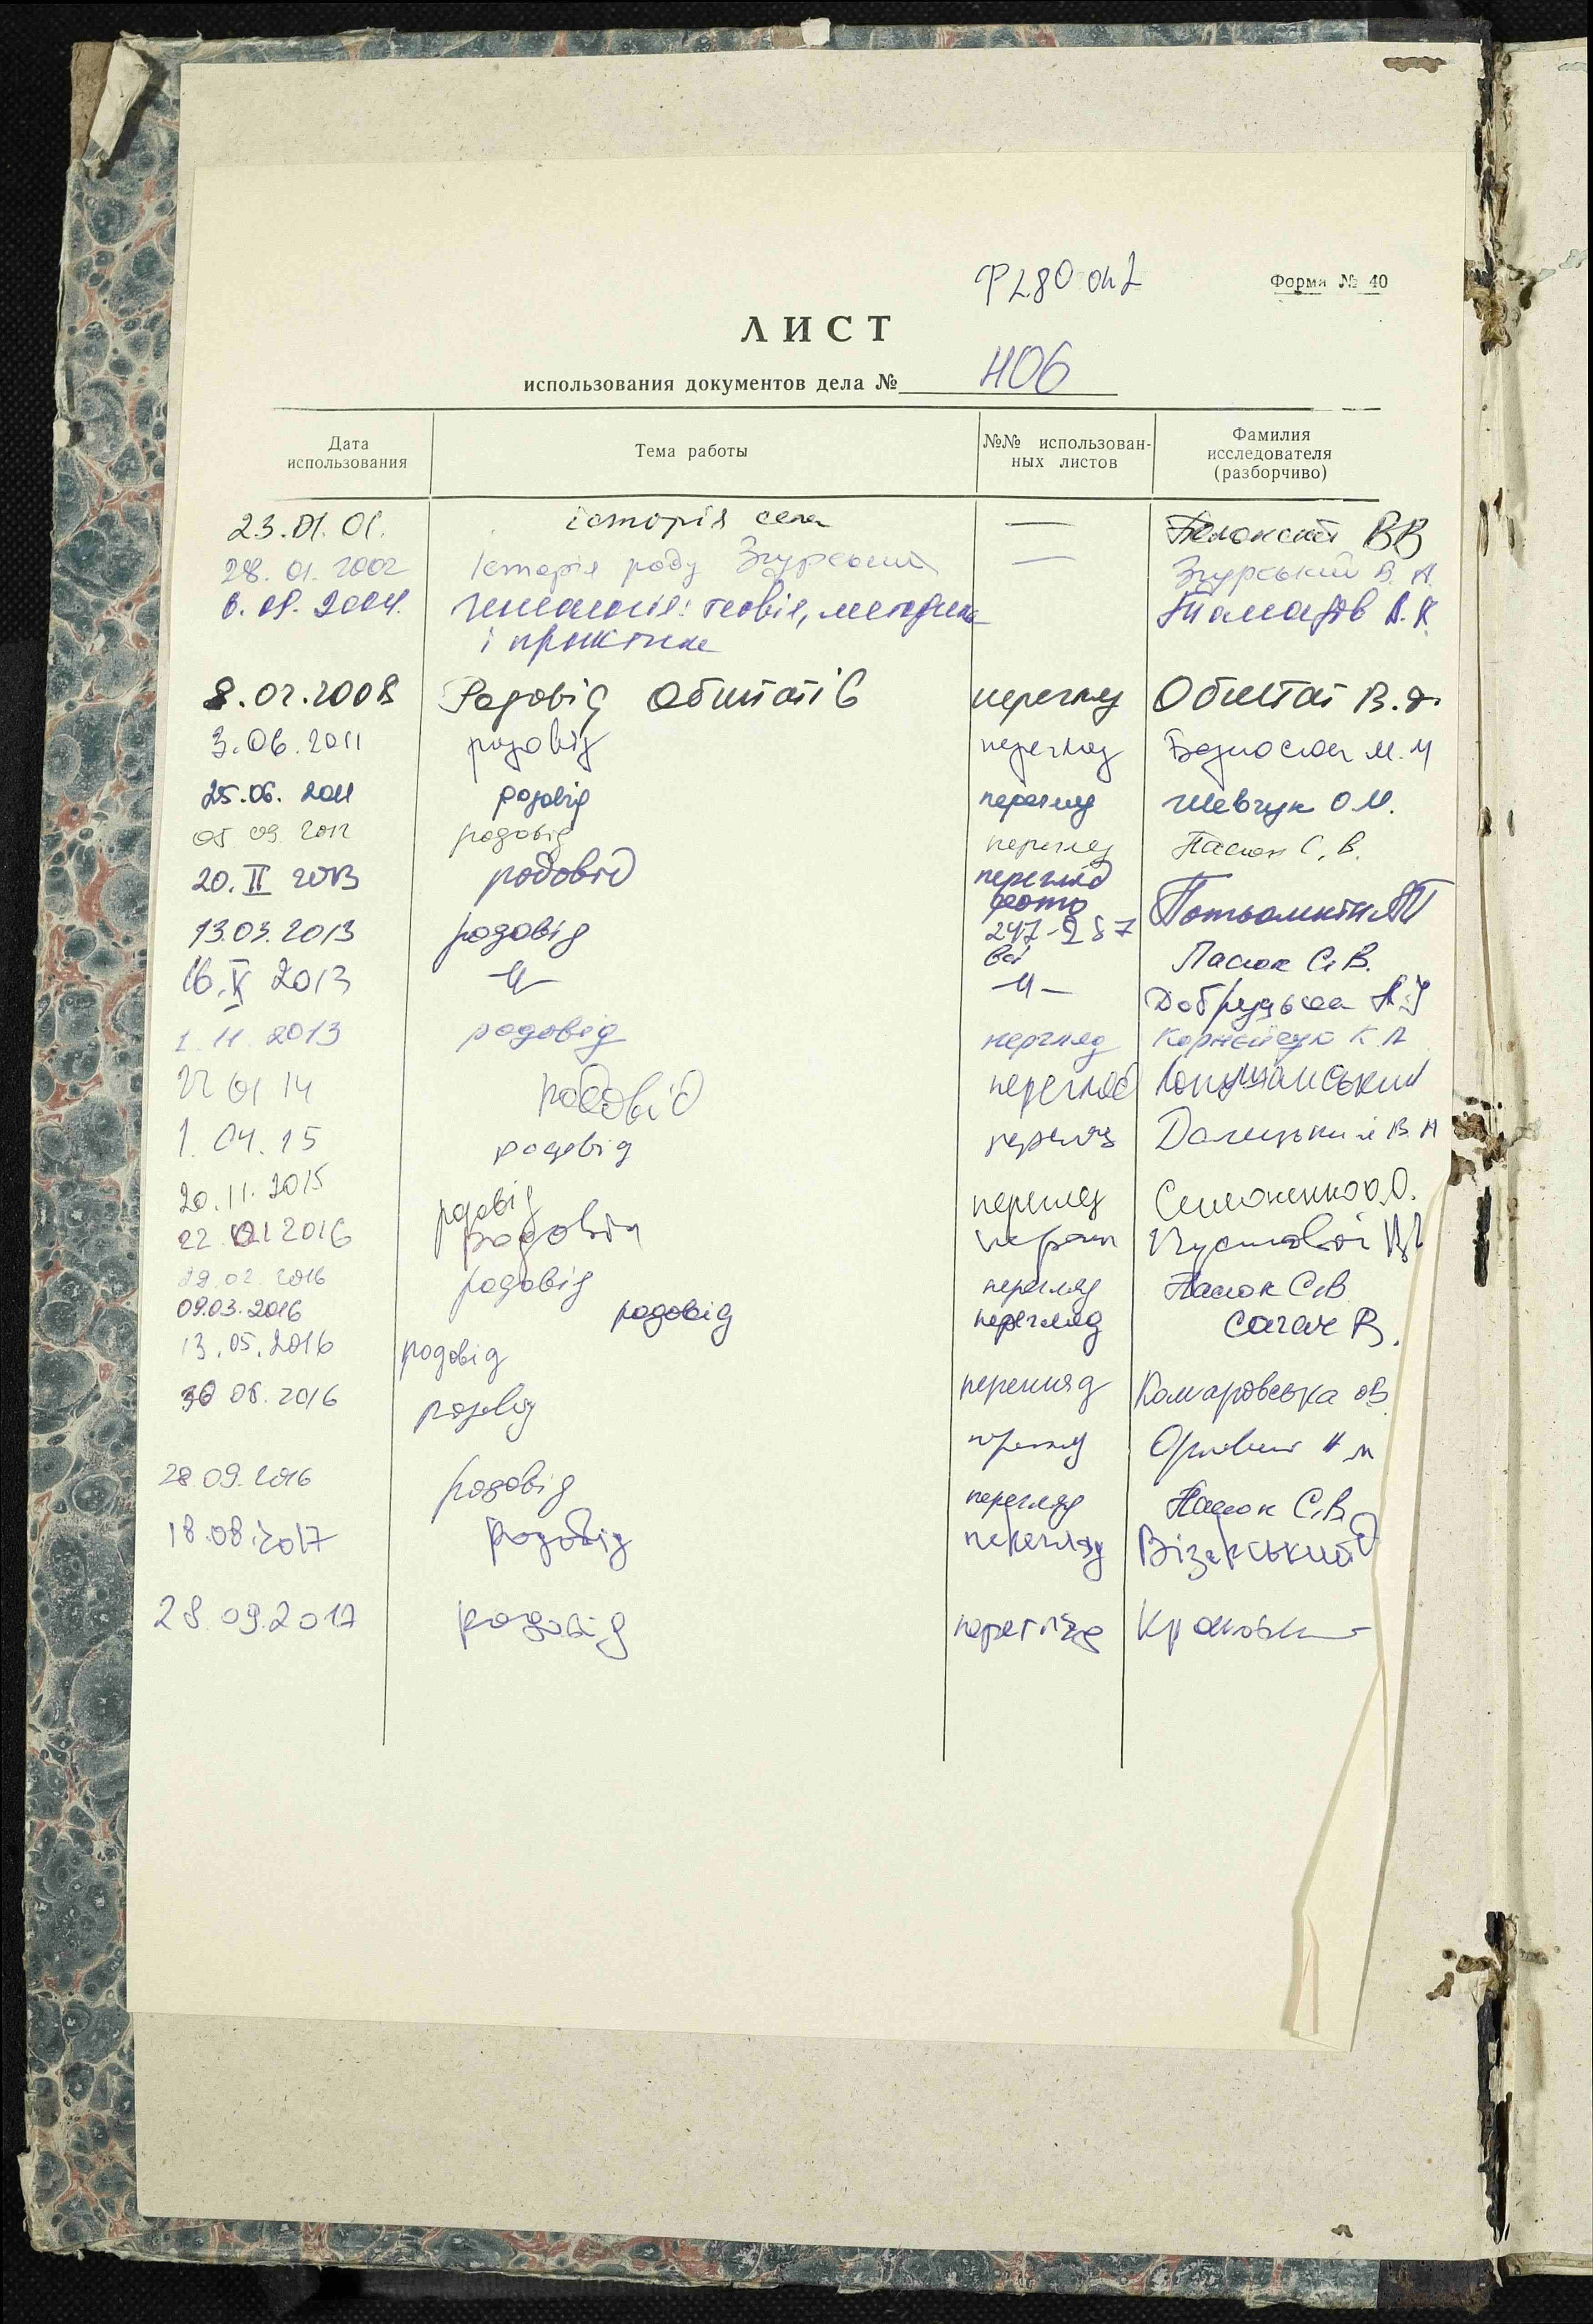 Ф 280 оп 2
Форма № 40
ЛИСТ
использования документов дела № 406
Дата использования
Тема работы
№№ использован-
ных листов
Фамилия
исследователя
(разборчиво)
23.01.01. історія села — ВВ
28.01.2002 Історія роду Згурських — Згурський В. А.
6. 2004. генеалогія: теорія, методика
і практика
8.02.2008 Родовід перегляд В.
3.06.2011 родовід перегляд М.
25.06. 2011 родовід перегляд Шевчук О.М.
05 09 2012 родовід перегляд Пасюк С. В.
20. II 2013 родовід перегляд
фото
247-287
13.03.2013 родовід всі Пасюк С.В.
16. 2013 -"- -"-
1. 11. 2013 родовід перегляд Корнейчук К.
22 01 14 родовід перегляд Лопушанський
1. 04. 15 родовід перегляд В.
20. 11. 2015 родовід перегляд Симоненко О.
22. 01 2016 родовід
29.02. 2016 родовід перегляд Пасюк С.В.
09.03.2016 родовід перегляд Сагач В.
13.05.2016 родовід перегляд Комаровська ОВ
30 08. 2016 родовід перегляд
28.09.2016 родовід перегляд Пасюк С.В.
18.08.2017 родовід перегляд
28.09.2017 родовід перегляд